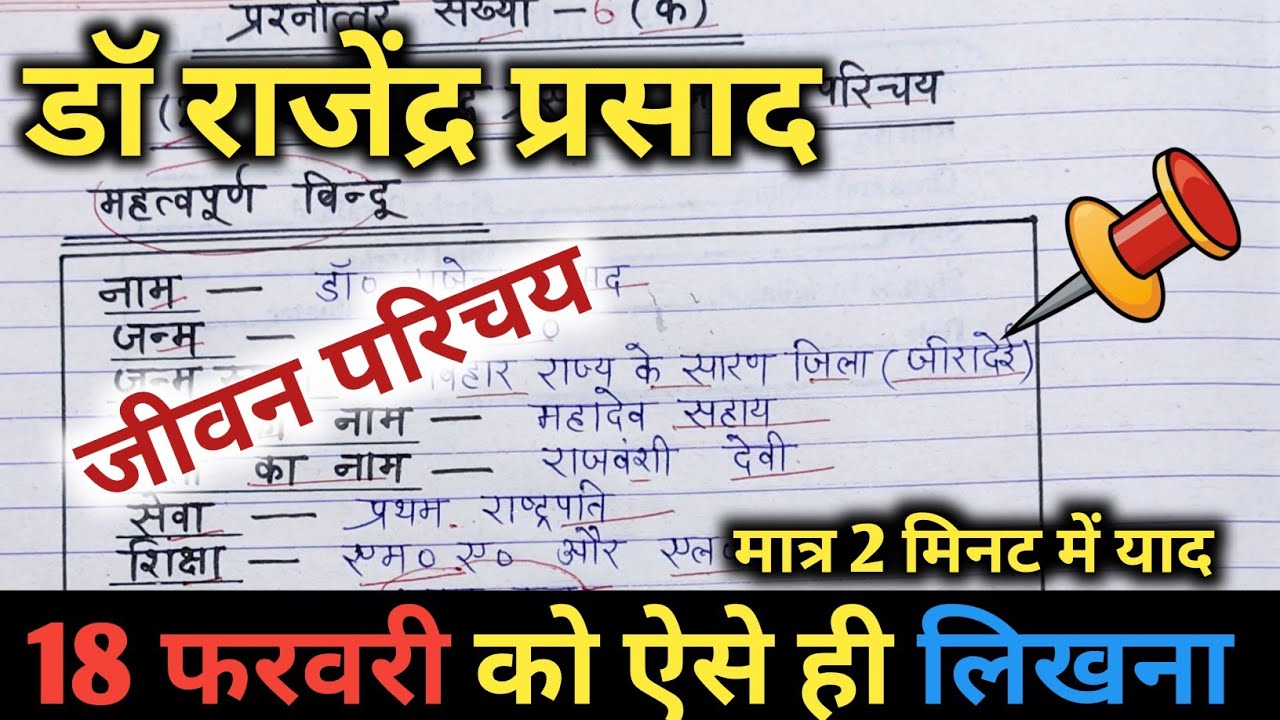 प्रश्नोत्तर संख्या - 6 (क)
डॉ राजेंद्र प्रसाद
परिचय
महत्वपूर्ण बिन्दू
नाम — डॉ०
जन्म —
जन्म बिहार राज्य के सारण जिला (जीरादेई)
नाम — महादेव सहाय
का नाम — राजवंशी देवी
सेवा — प्रथम राष्ट्रपति
शिक्षा — एम० ए० और
जीवन परिचय
मात्र 2 मिनट में याद
18 फरवरी को ऐसे ही लिखना